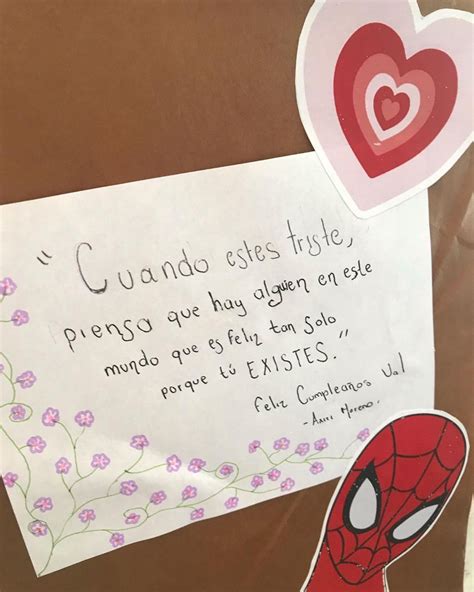 "Cuando estes triste,
piensa que hay alguien en este
mundo que es feliz tan solo
porque tú EXISTES."
Feliz Cumpleaños Val
- Moreno -